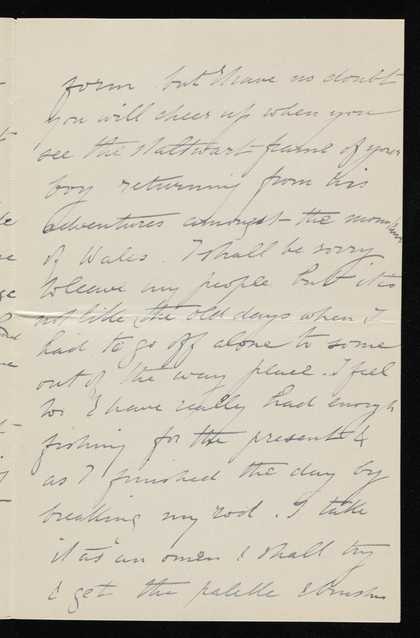 form but I have no doubt
you will cheer up when you
see the stalwart frame of your
boy returning from his
adventures amongst the mountains
of Wales. I shall be sorry
to leave my people but it is
not like the old days when I
had to go off alone to some
out of the way place. I feel
I have really had enough
fishing for the present &
as I finished the day by
breaking my rod. I take
it as an omen & shall try
& get the palette & brushes